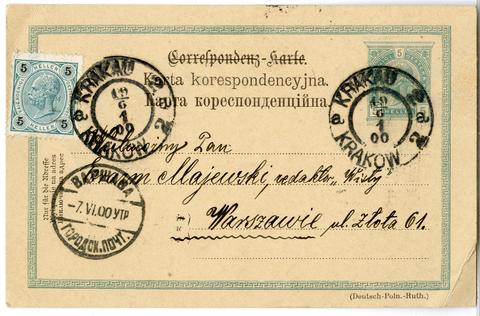 Correspondenz-Karte.
Karta korespondencyjna.
Карта кореспонденційна.
5 HELLER 5
5
KRAKAU
KRAKÓW
6
1
00
KRAKAU
KRAKOW
6
1
00
Wielmożny Pan
Erazm Majewski, redaktor „Wisły"
Warszawie ul. Złota 61.
Nur für die Adresse
ВАРШАВА
-7.VI.00 УТР
ГОРОДСК. ПОЧТ.
(Deutsch-Poln.-Ruth.)